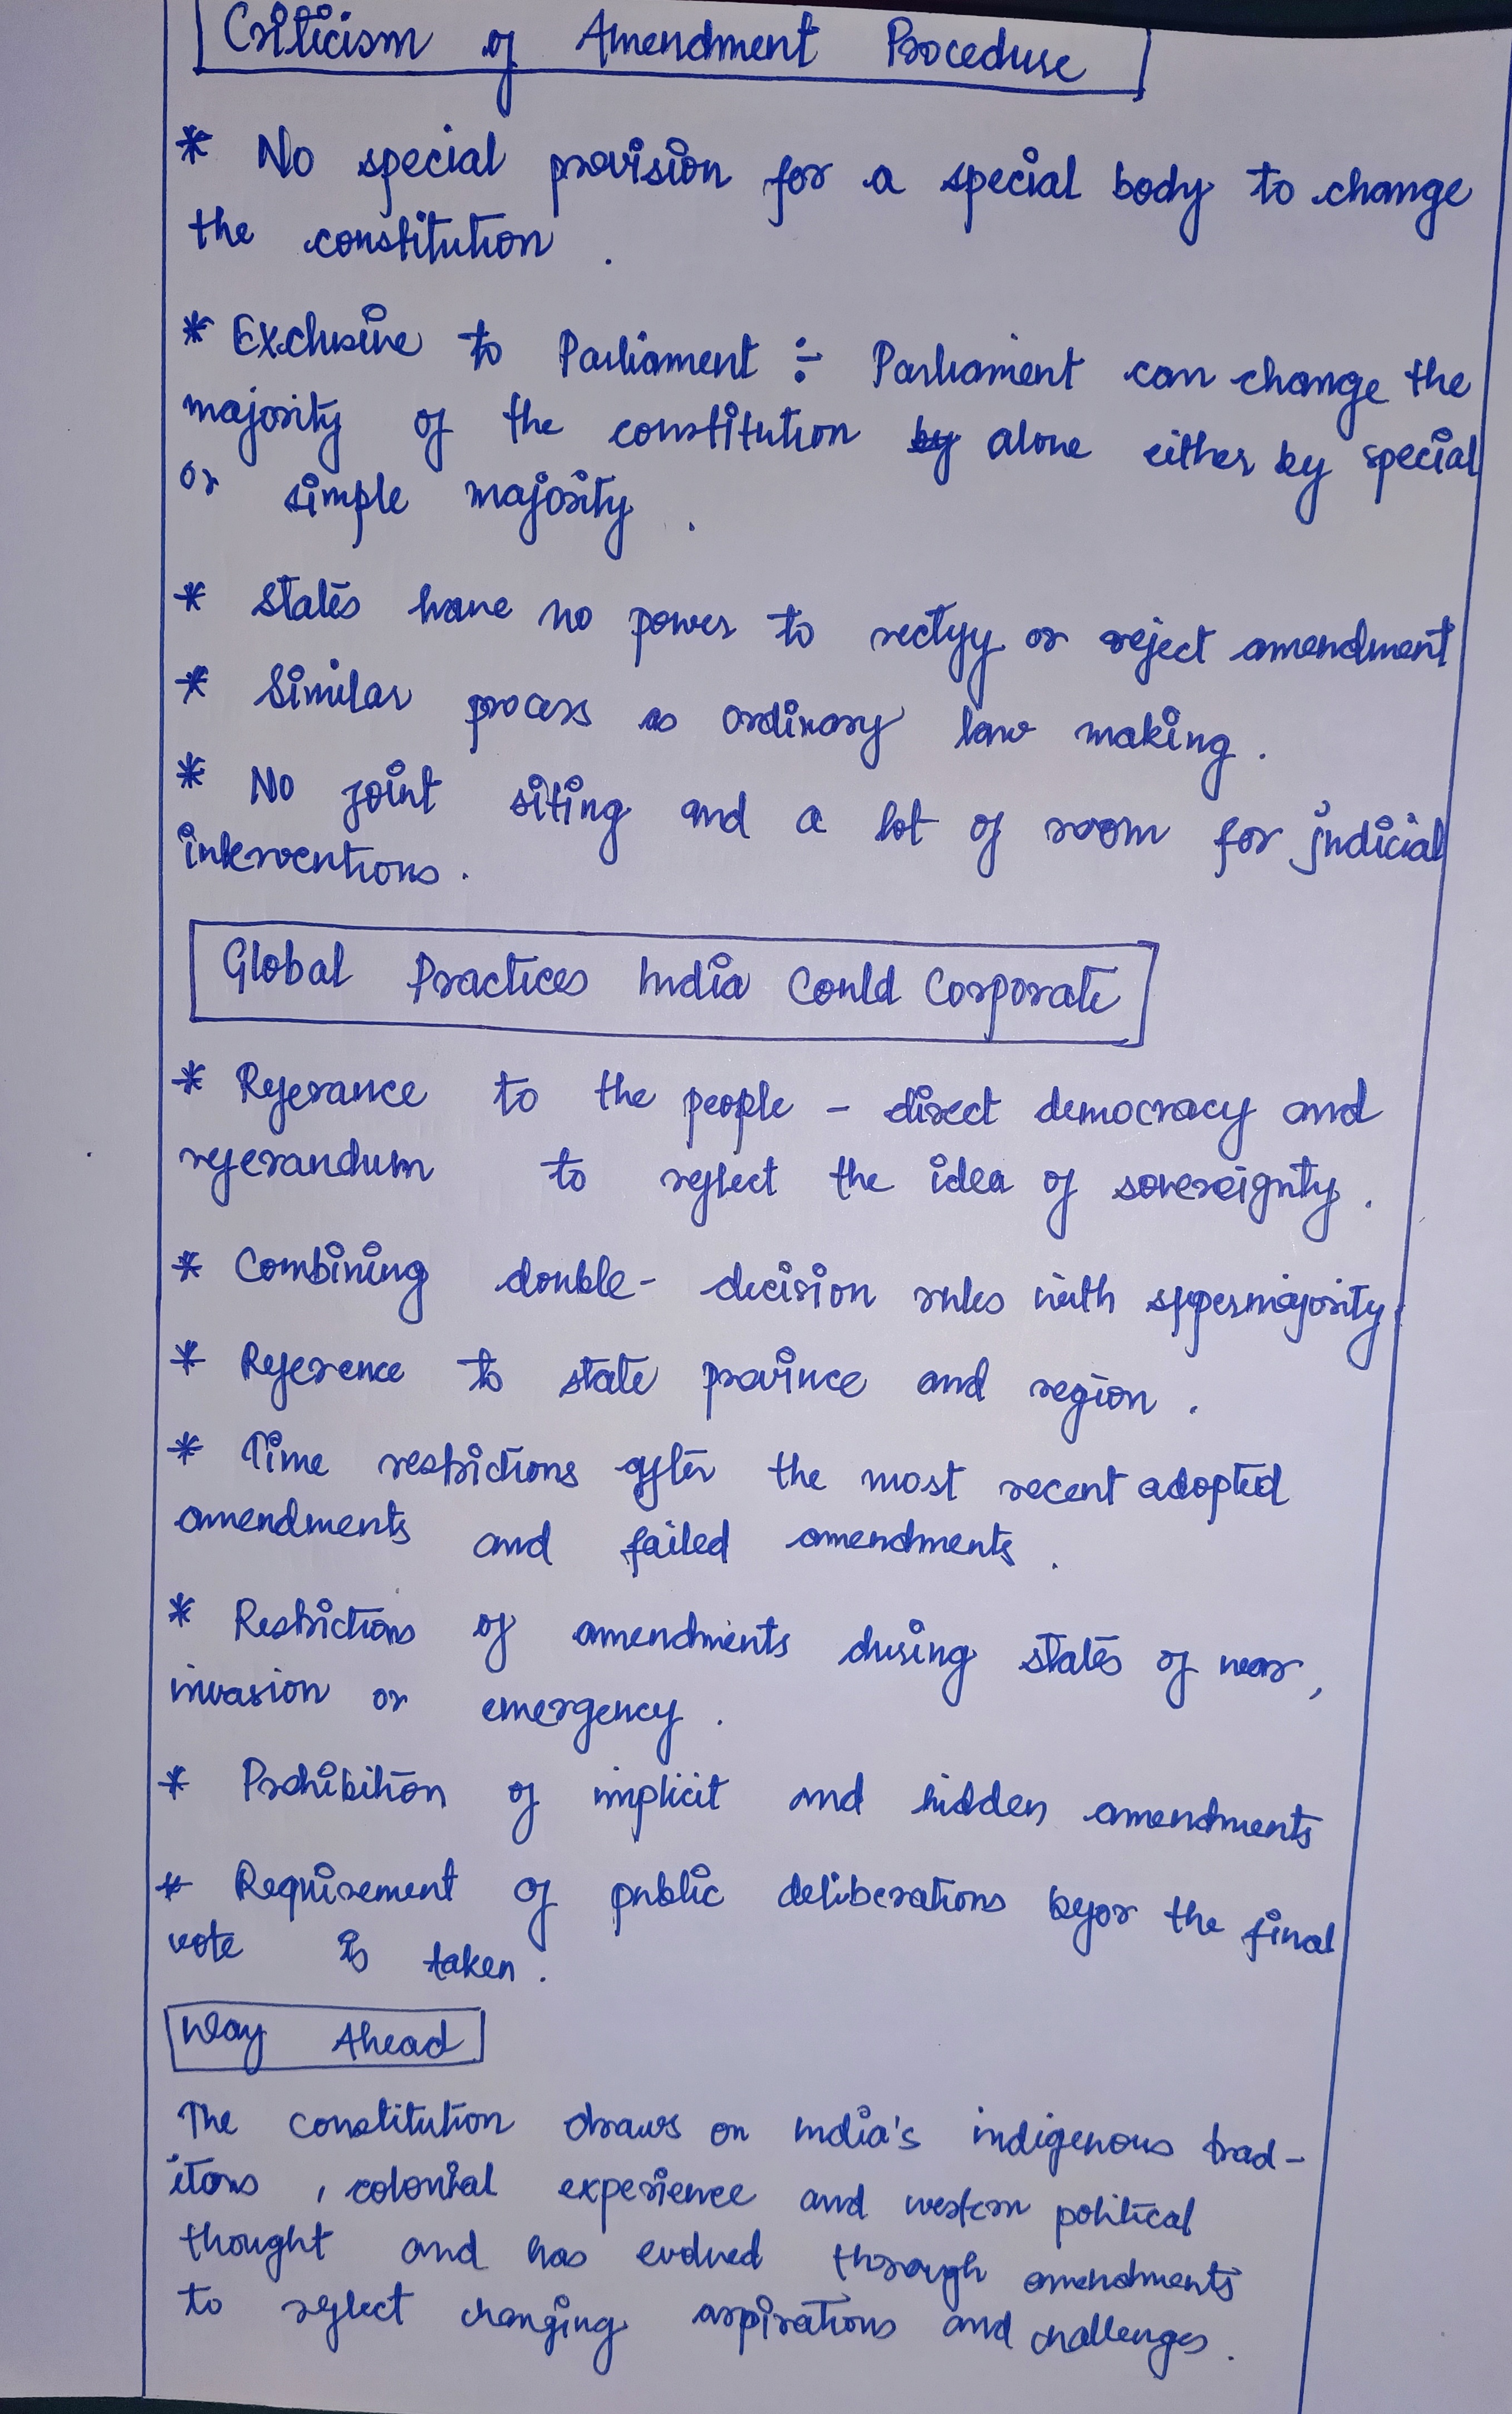 Criticism of Amendment Procedure
* No special provision for a special body to change
the constitution .
* Exclusive to Parliament ÷ Parliament can change the
majority of the constitution by alone either by special
or simple majority .
* States have no power to rectify or reject amendment
* Similar process as ordinary law making .
* No joint siting and a lot of room for judicial
interventions .
Global Practices India Could Corporate
* Referance to the people - direct democracy and
referandum to reflect the idea of sovereignty .
* Combining double- decision rules with supermajority.
* Reference to state province and region .
* Time restrictions after the most recent adopted
amendments and failed amendments .
* Restrictions of amendments during states of war ,
invasion or emergency .
* Prohibition of implicit and hidden amendments
* Requirement of public deliberations befor the final
vote is taken .
Way Ahead
The constitution draws on India's indigenous trad-
itons , colonial experience and western political
thought and has evolved through amendments
to reflect changing aspirations and challenges .